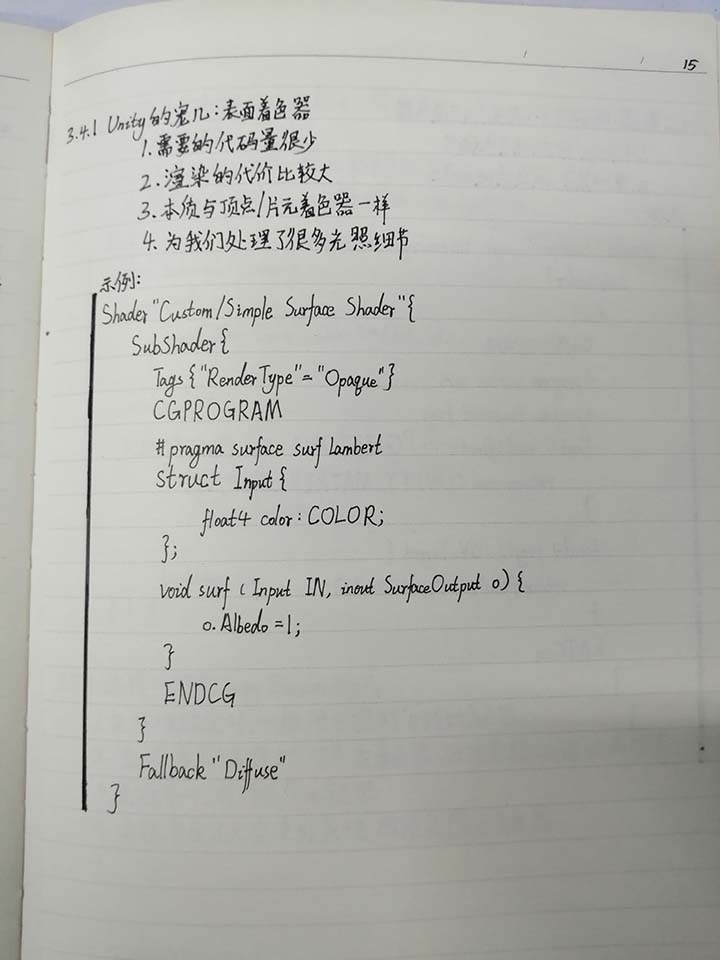 15
3.4.1 Unity的宠儿:表面着色器
1.需要的代码量很少
2.渲染的代价比较大
3.本质与顶点/片元着色器一样
4.为我们处理了很多光照细节
示例:
Shader"Custom/Simple Surface Shader"{
SubShader{
Tags{"RenderType"="Opaque"}
CGPROGRAM
#pragma surface surf Lambert
struct Input{
float4 color:COLOR;
};
void surf(Input IN, inout SurfaceOutput o){
o.Albedo=1;
}
ENDCG
}
Fallback"Diffuse"
}